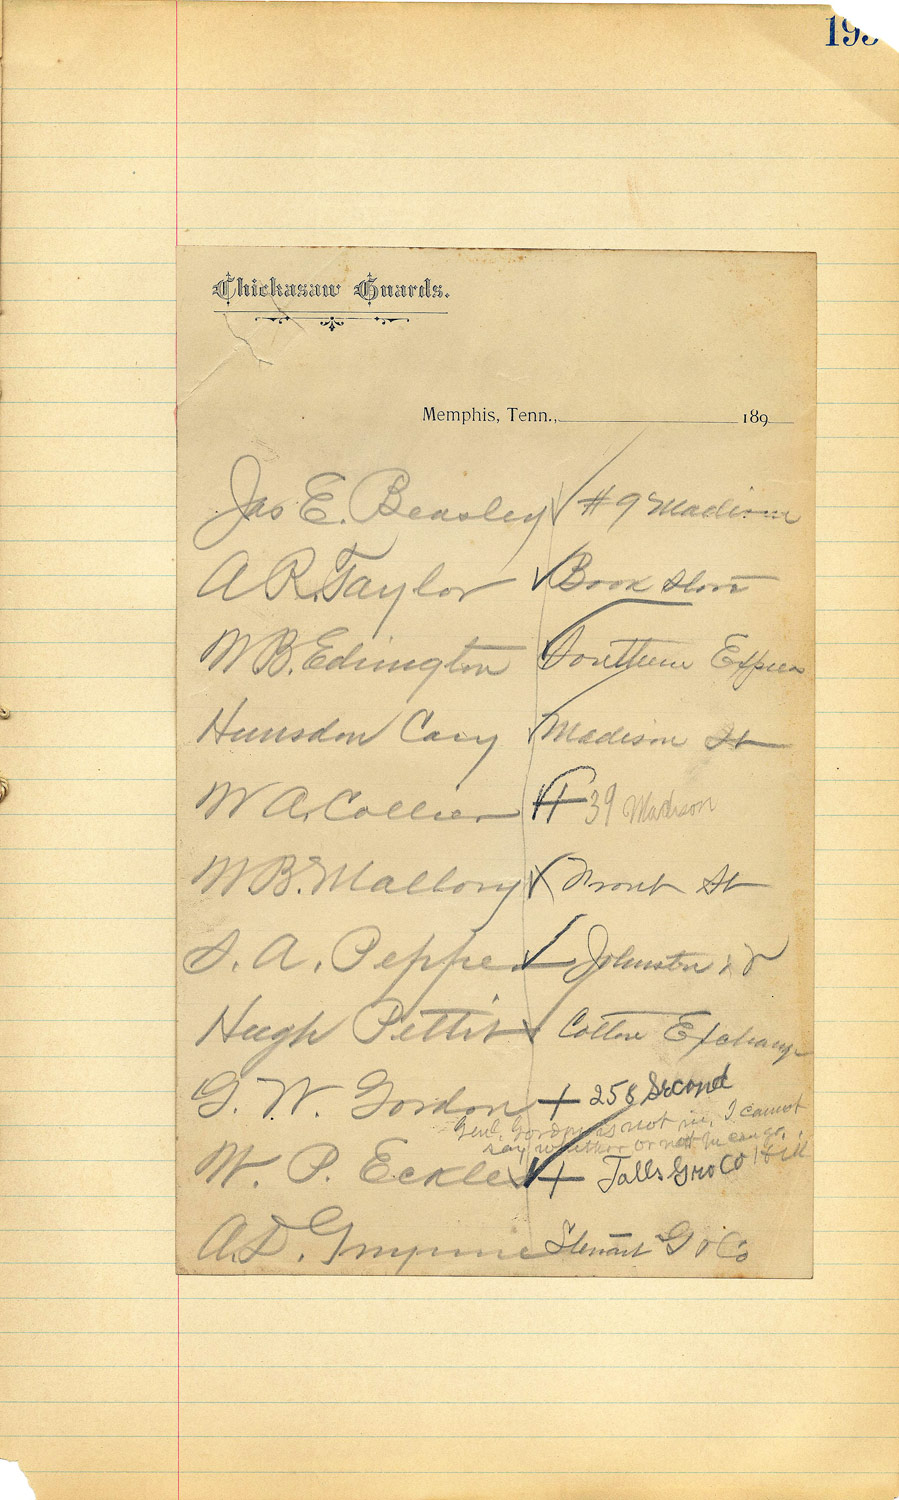 Chickasaw Guards.
Memphis, Tenn., 189
Jas E. Beasley # 9 Madison
A R. Taylor Book Store
W B. Edington Southern Express
Hunsdon Cary Madison St
W A. Collier 39 Madison
W B. Mallory Front St
S. A. Pepper Johnston &
Hugh Pettit Cotton Exchange
G. W. Gordon + 258 Second
Genl. Gordon is not in, I cannot
say whether or not he can go,
W. P. Eckles + Falls Gro Co
A. D. Gwynne Stewart G & Co